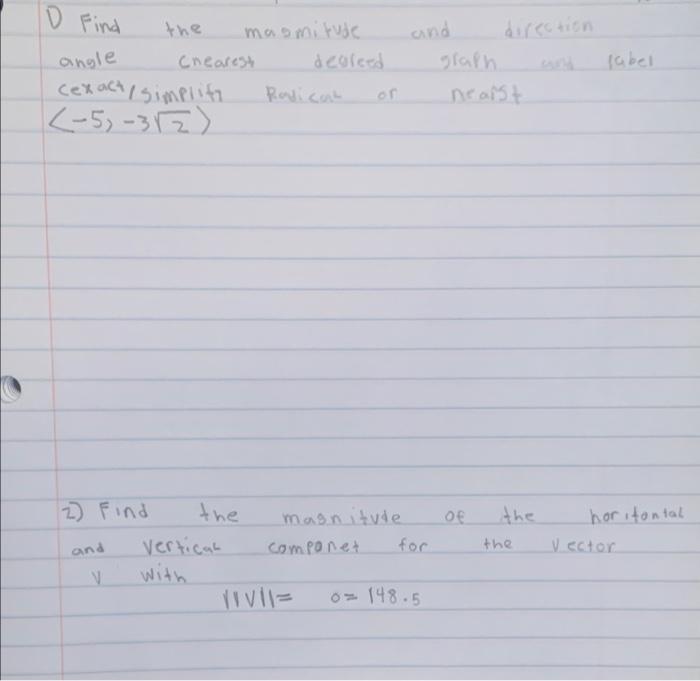 1) Find the magmitude and direction
angle (nearest degreed graph and label
(exact/simplify Radical or nearst
<-5, -3√2>
2) Find the magnitude of the horitontal
and vertical componet for the vector
V with
||V||= θ= 148.5